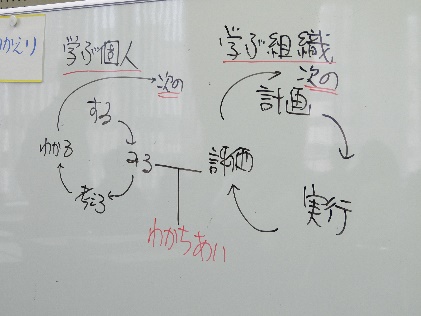 かえり
学ぶ個人
次の
する
みる
考える
わかる
学ぶ組織
次の
計画
実行
評価
わかちあい